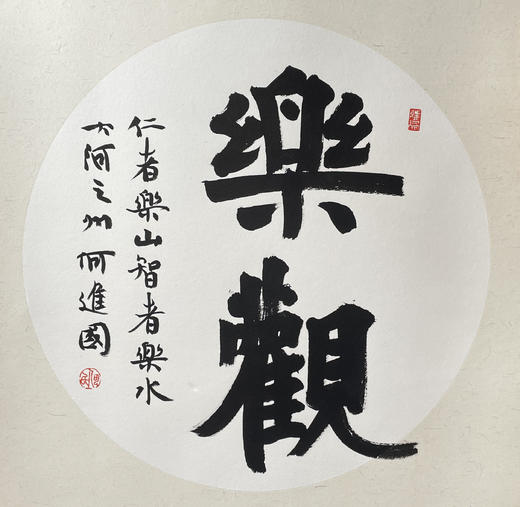 樂觀
仁者樂山智者樂水
大阿之州何進國